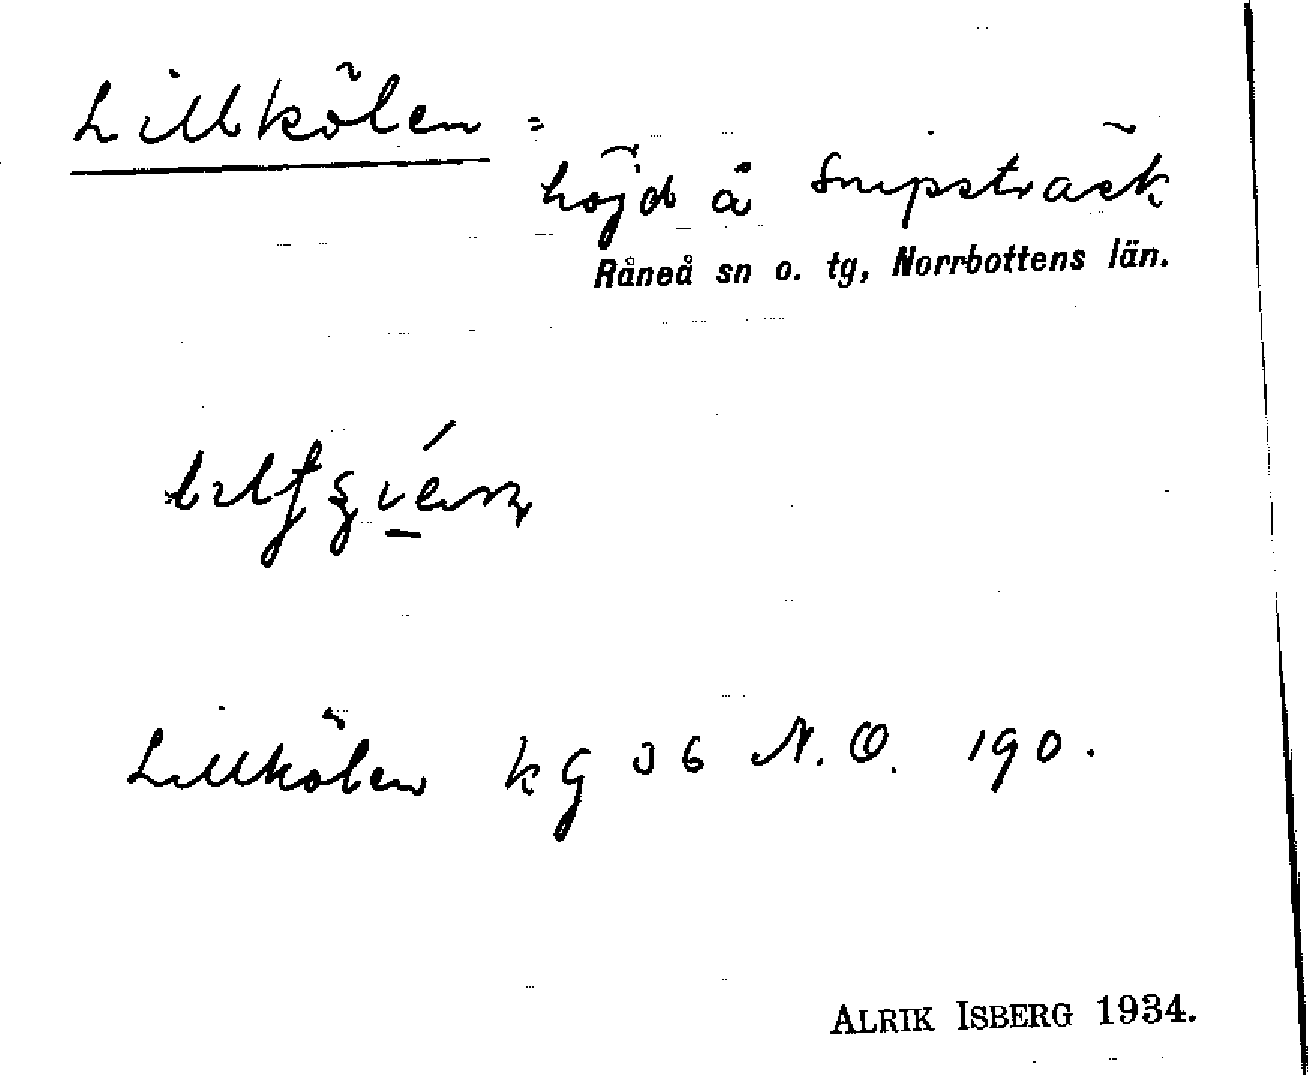 Lillkölen =
höjd å Snipsträsk
Råneå sn o. tg, Norrbottens län.
Lillkölen kg 36 N.O. 190.
ALRIK ISBERG 1934.